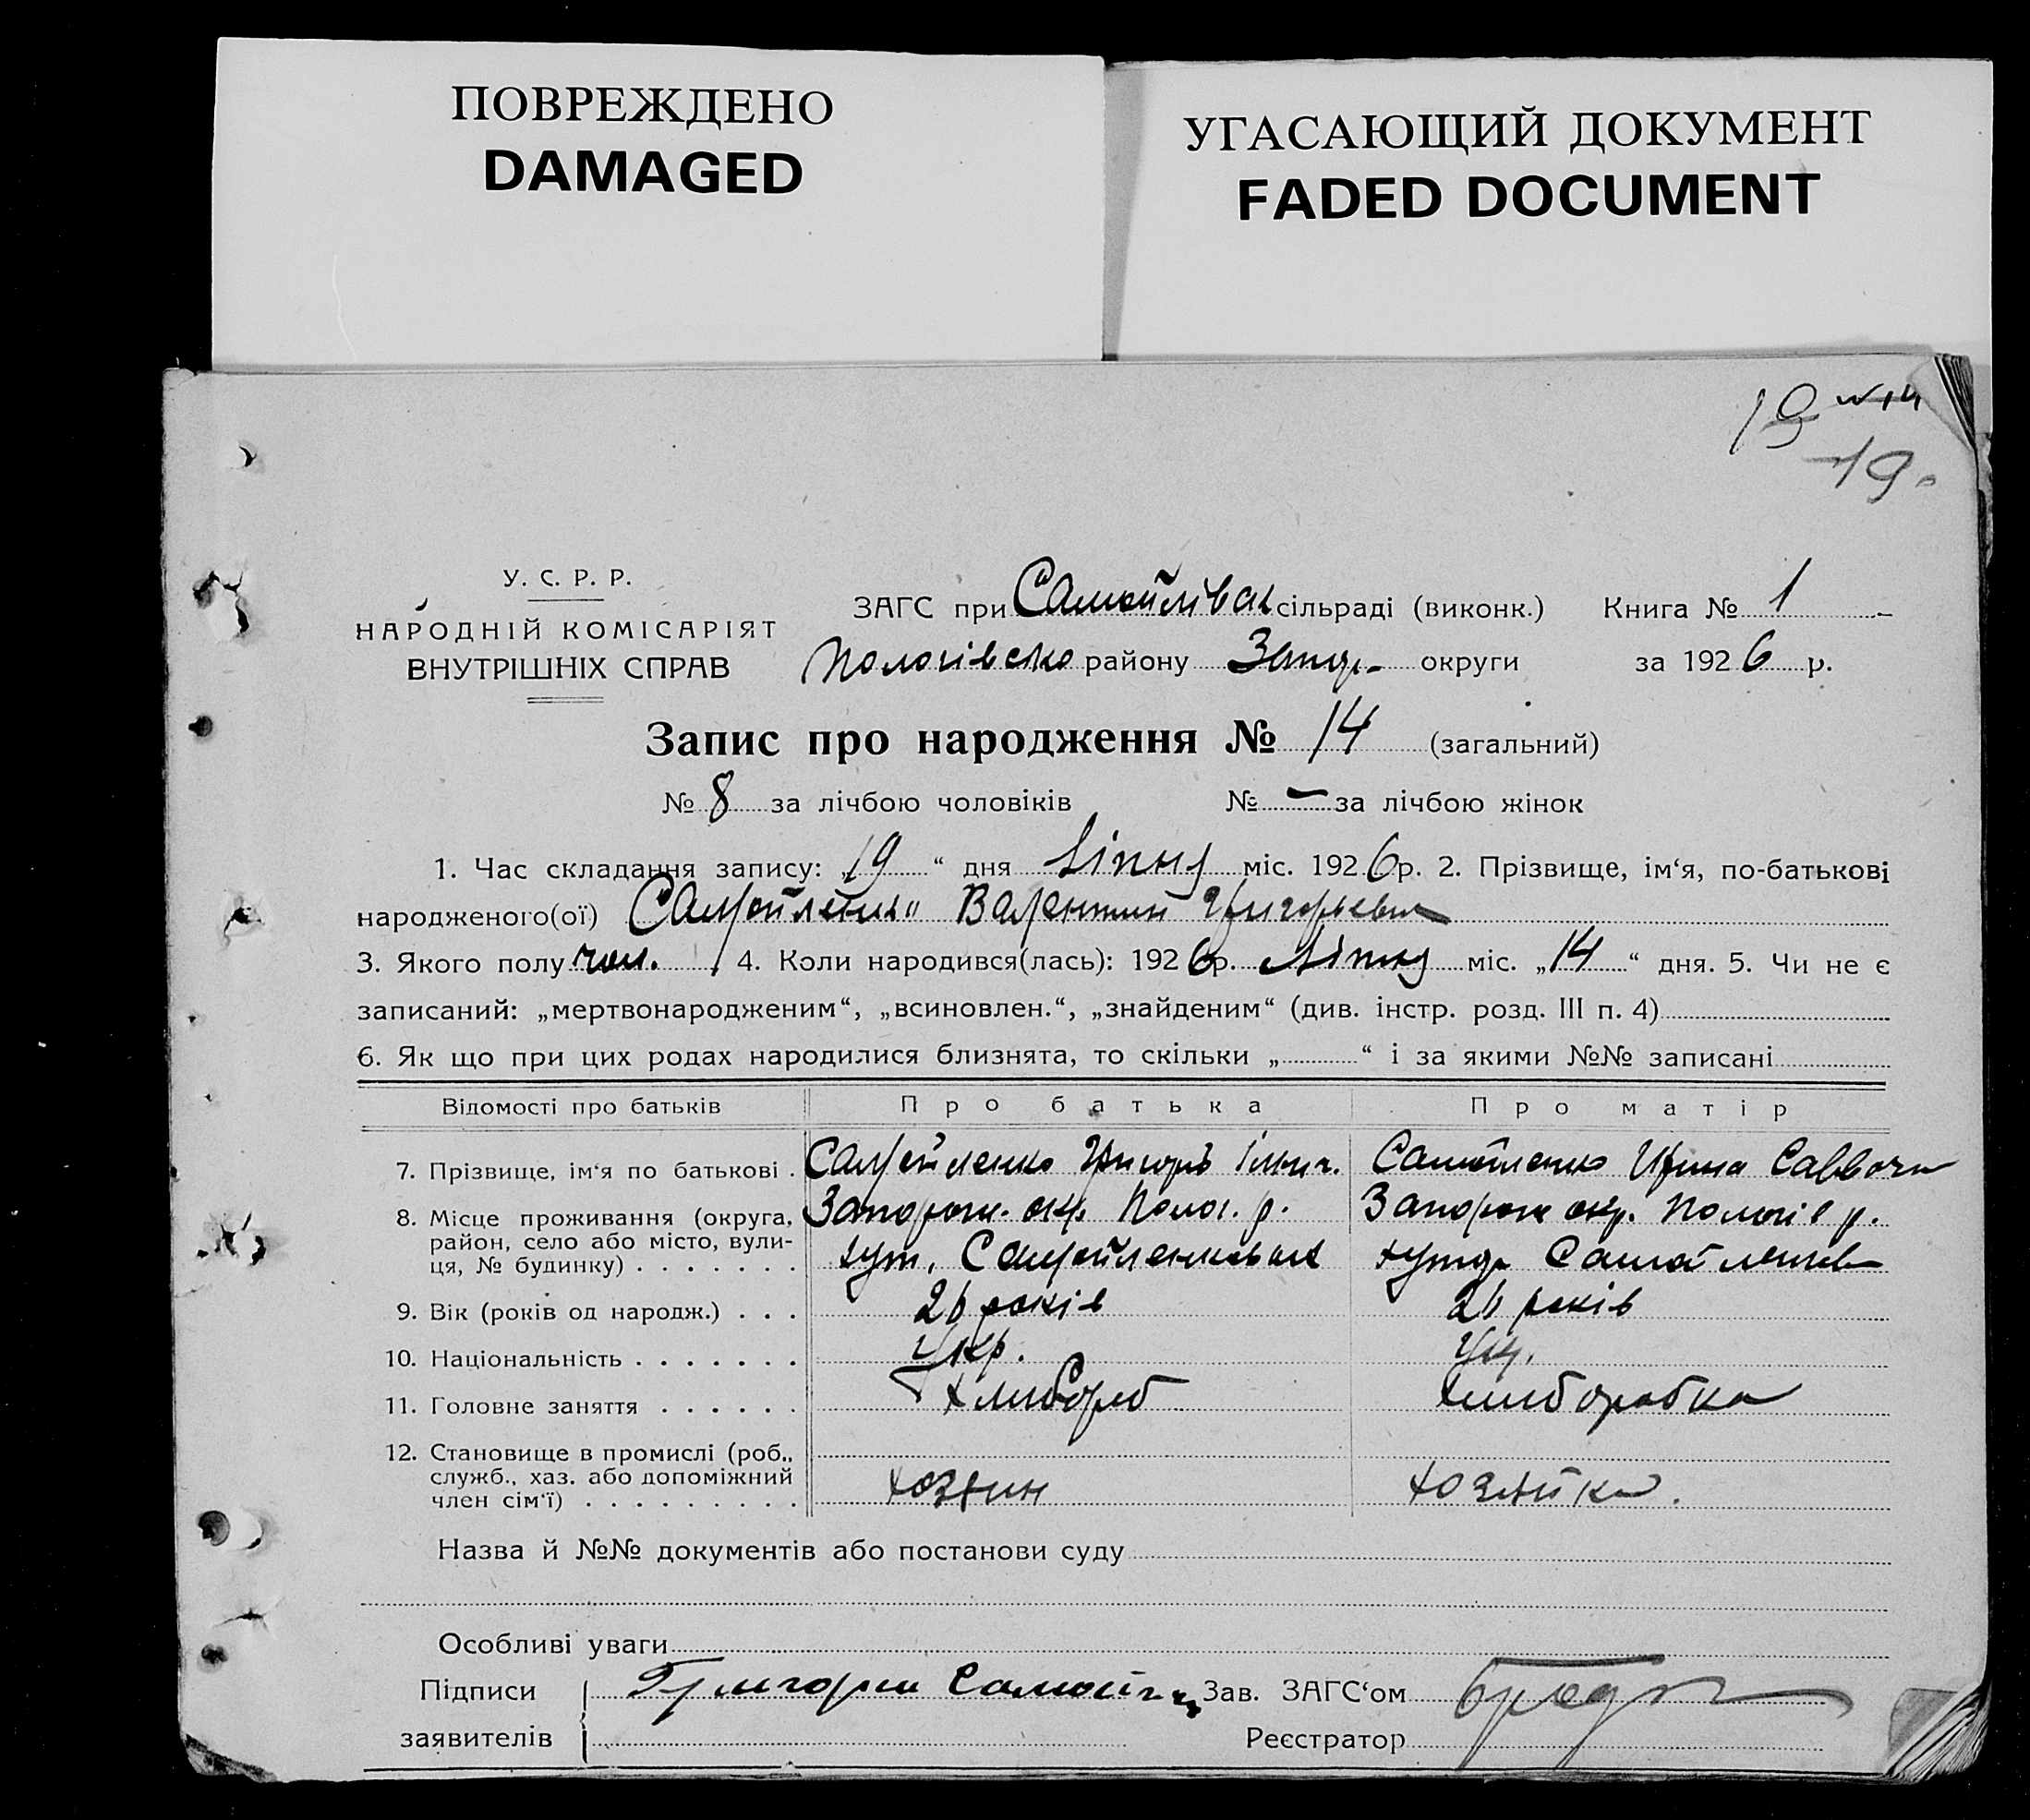 ПОВРЕЖДЕНО
DAMAGED
УГАСАЮЩИЙ ДОКУМЕНТ
FADED DOCUMENT
19
19
У. С. Р. Р.
НАРОДНІЙ КОМІСАРІЯТ
ВНУТРІШНІХ СПРАВ
ЗАГС при Самойлівск сільраді (виконк.) Книга № 1
Пологівсько району Запор. округи за 1926 р.
Запис про народження № 14 (загальний)
№ 8 за лічбою чоловіків № – за лічбою жінок
1. Час складання запису: „19“ дня Липня міс. 1926р. 2. Прізвище, ім‘я, по-батькові
народженого(ої) Самойленко Валентин Григорьевич
3. Якого полу чол. 4. Коли народився(лась): 1926р. Липня міс. „14“ дня. 5. Чи не є
записаний: „мертвонародженим“, „всиновлен.“, „знайденим“ (див. інстр. розд. III п. 4)
6. Як що при цих родах народилися близнята, то скільки „ “ і за якими №№ записані
Відомості про батьків Про батька Про матір
7. Прізвище, ім‘я по батькові . Самойленко Григорь Самойленко Ирина Саввовна
8. Місце проживання (округа, Запорож. окр. Полог. р. Запорож окр. Пологів р.
район, село або місто, вули-
ця, № будинку) . . . . . . . хут. Самойленков хутор Самойленков
9. Вік (років од народж.) . . . 26 років 26 років
10. Національність . . . . . . . Укр. Укр.
11. Головне заняття . . . . . . хлибороб хлиборобка
12. Становище в промислі (роб.,
служб., хаз. або допоміжний
член сім‘ї) . . . . . . . . . хозяин хозяйка.
Назва й №№ документів або постанови суду
Особливі уваги
Підписи Григорий Самойл Зав. ЗАГС‘ом
заявителів Реєстратор